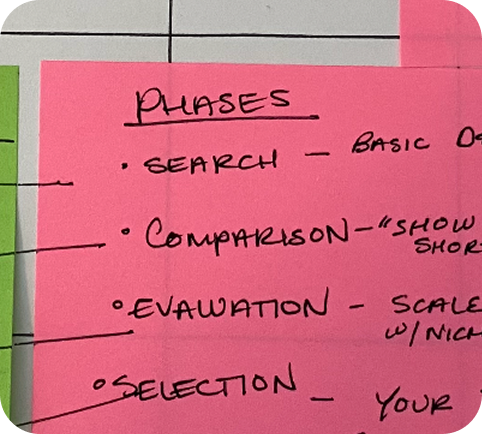 PHASES
• SEARCH – BASIC
• COMPARISON – "SHOW
SHOR
• EVALUATION – SCALE
W/NICH
• SELECTION – YOUR